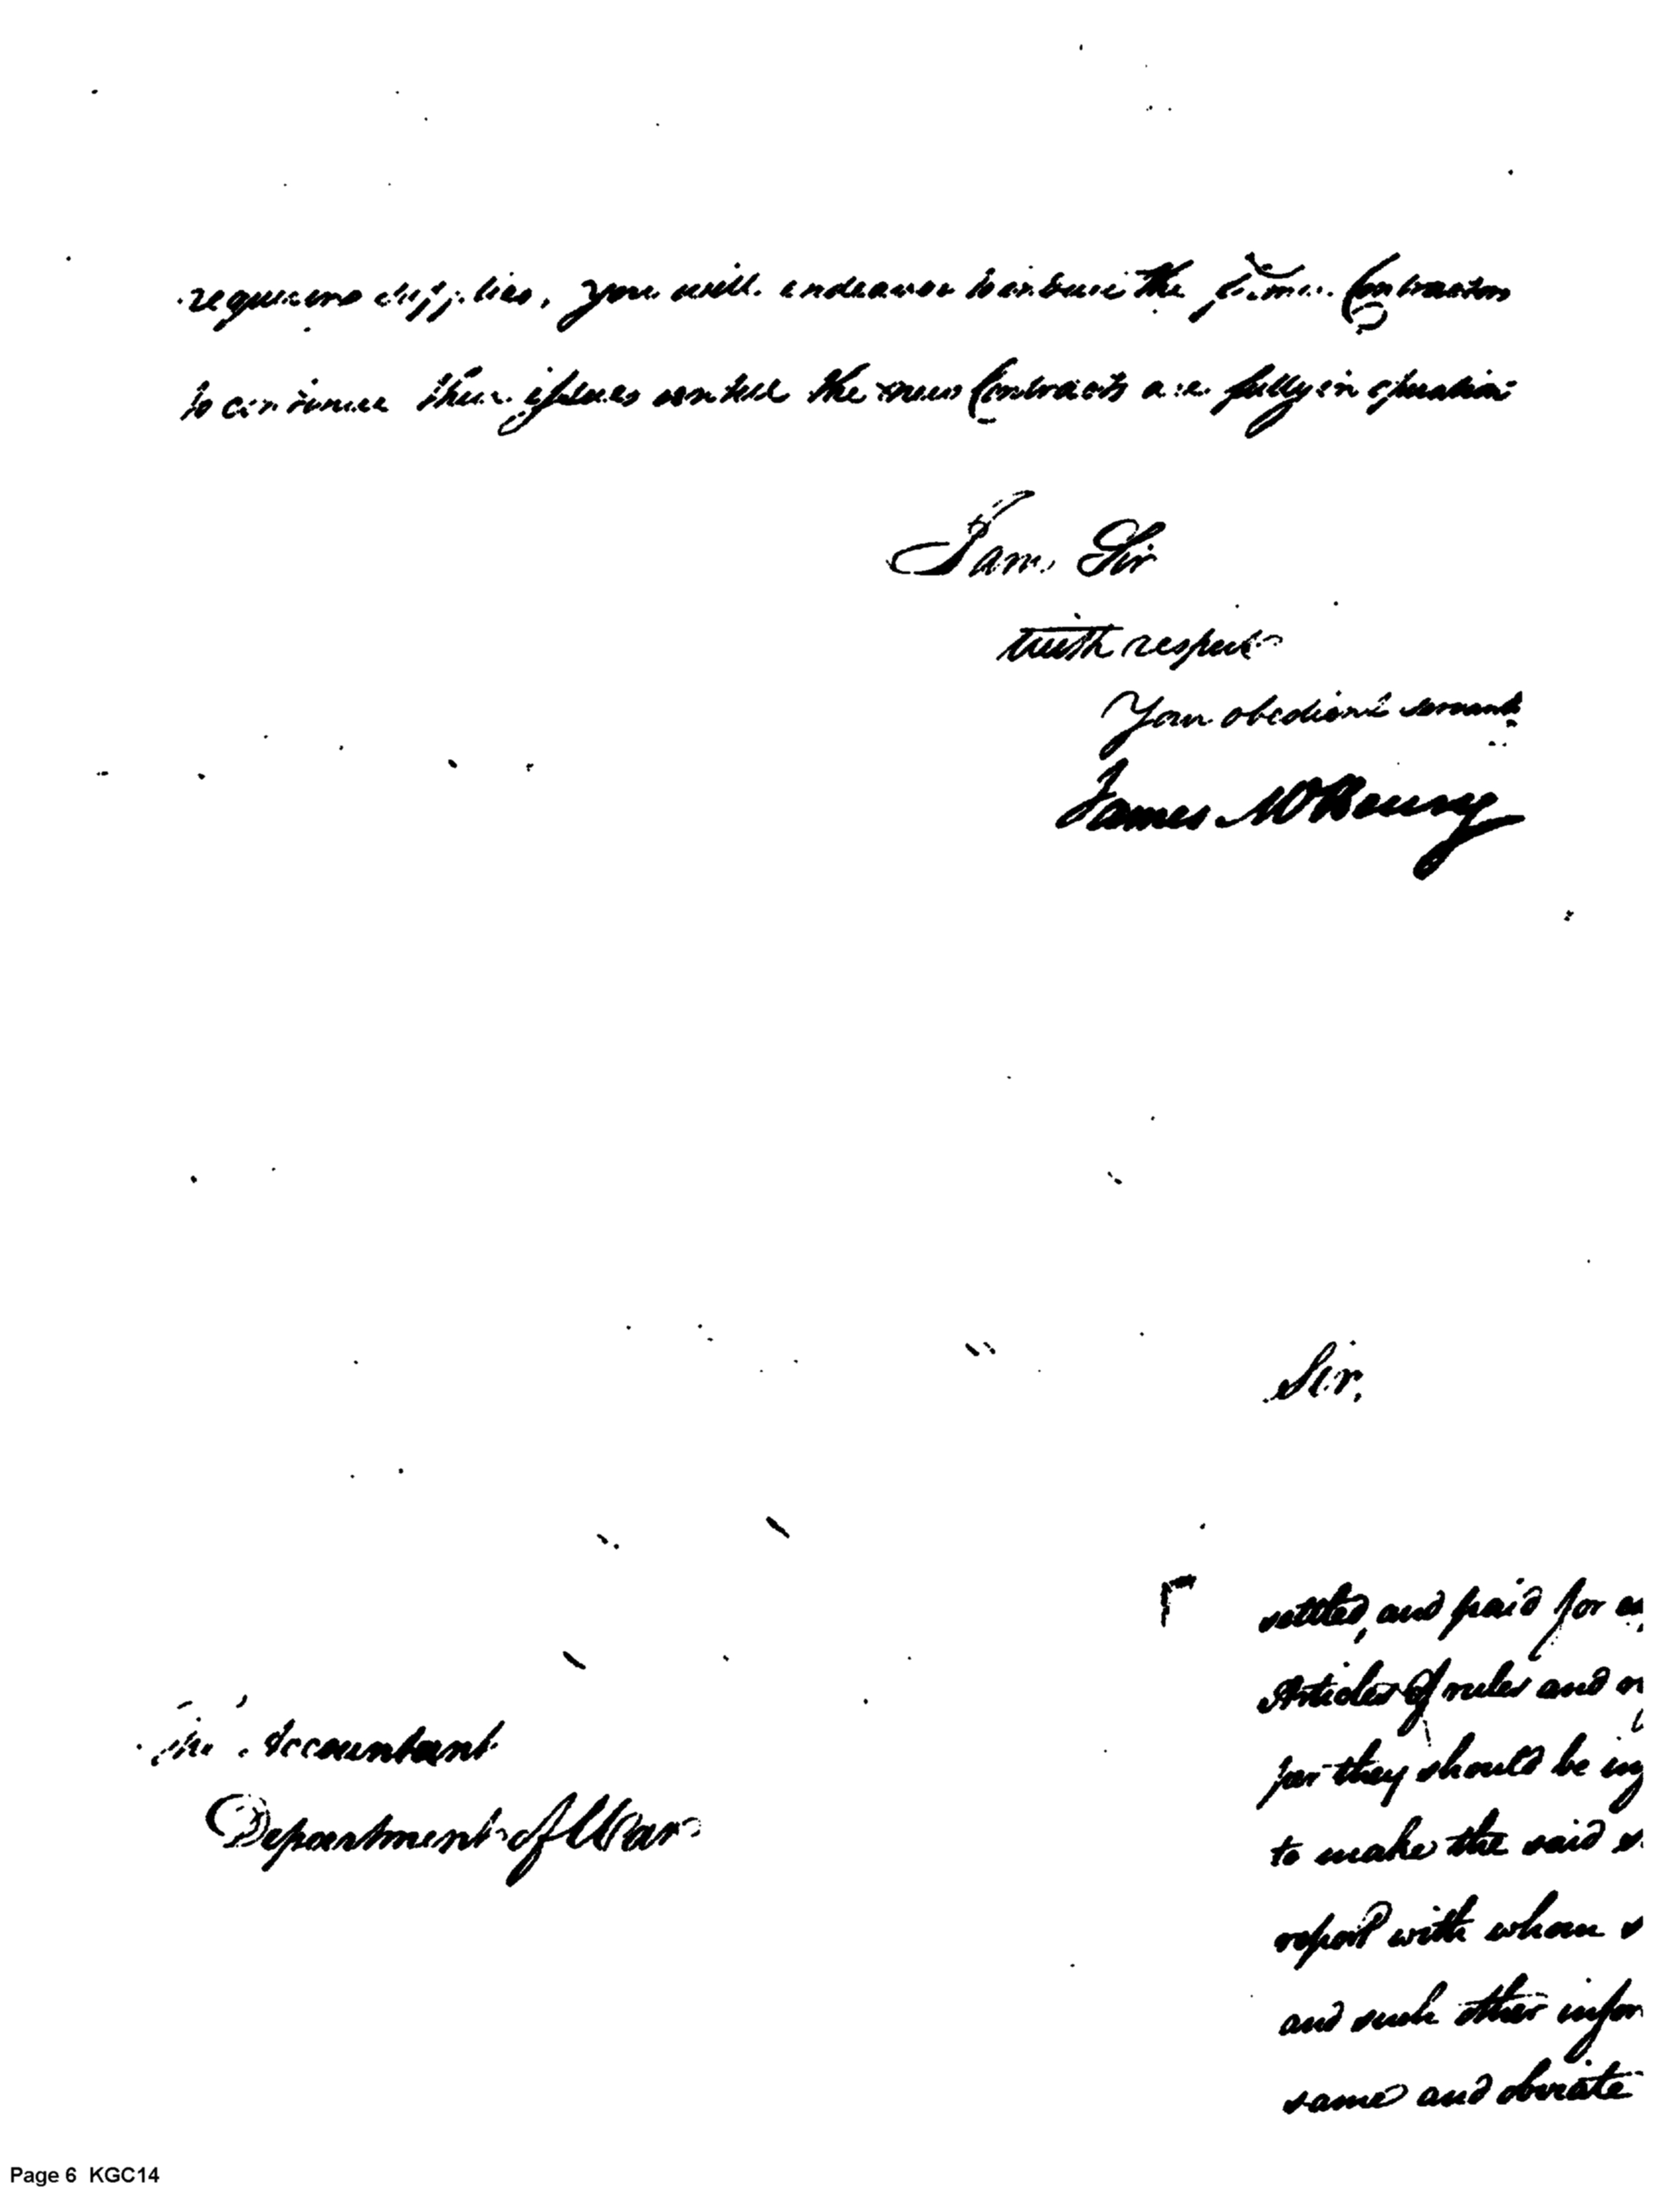 requisite supplies, you will endeavor to induce the former Contractors
to continue their issues until the new Contracts are fully in operation
I am, Sir
with respect
Your obedient servant
James McHenry
Sir,
settled, and paid for
Articles of rules and
far they should be
to make the said
report with whom
and such other infor
same and obviate
The Accountant
Department of War
Page 6 KGC14